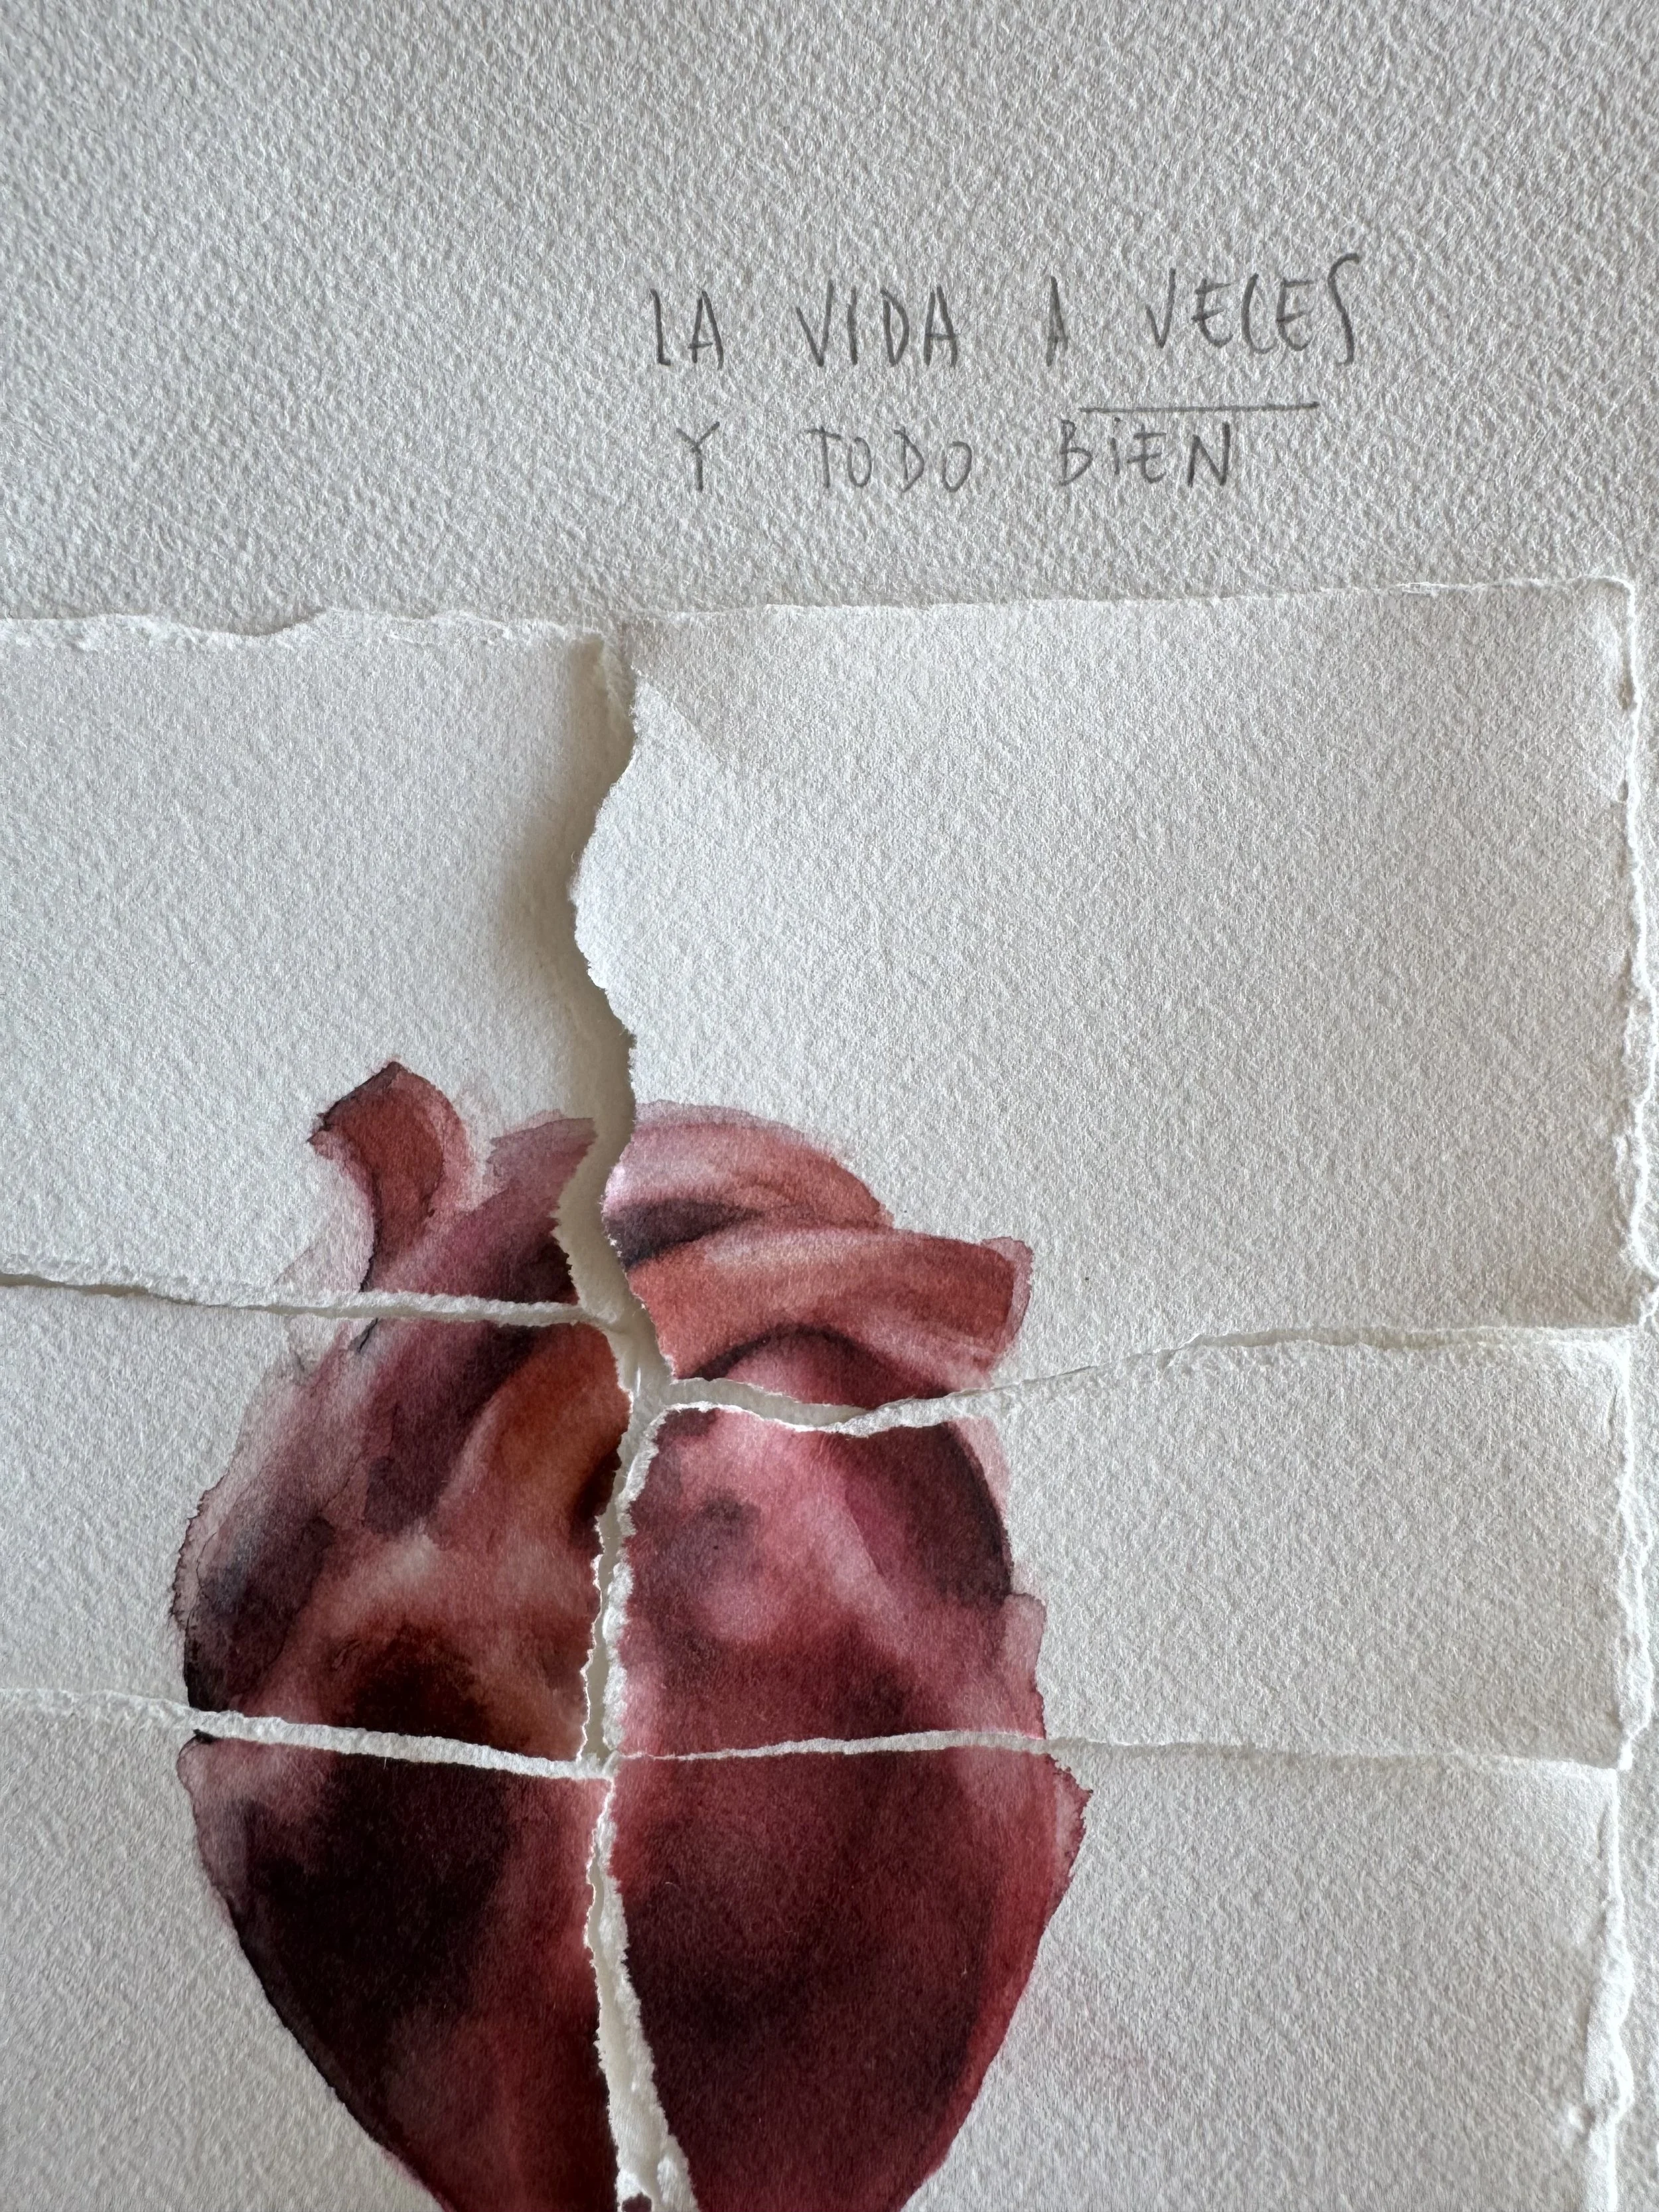 LA VIDA A VECES
Y TODO BiEN